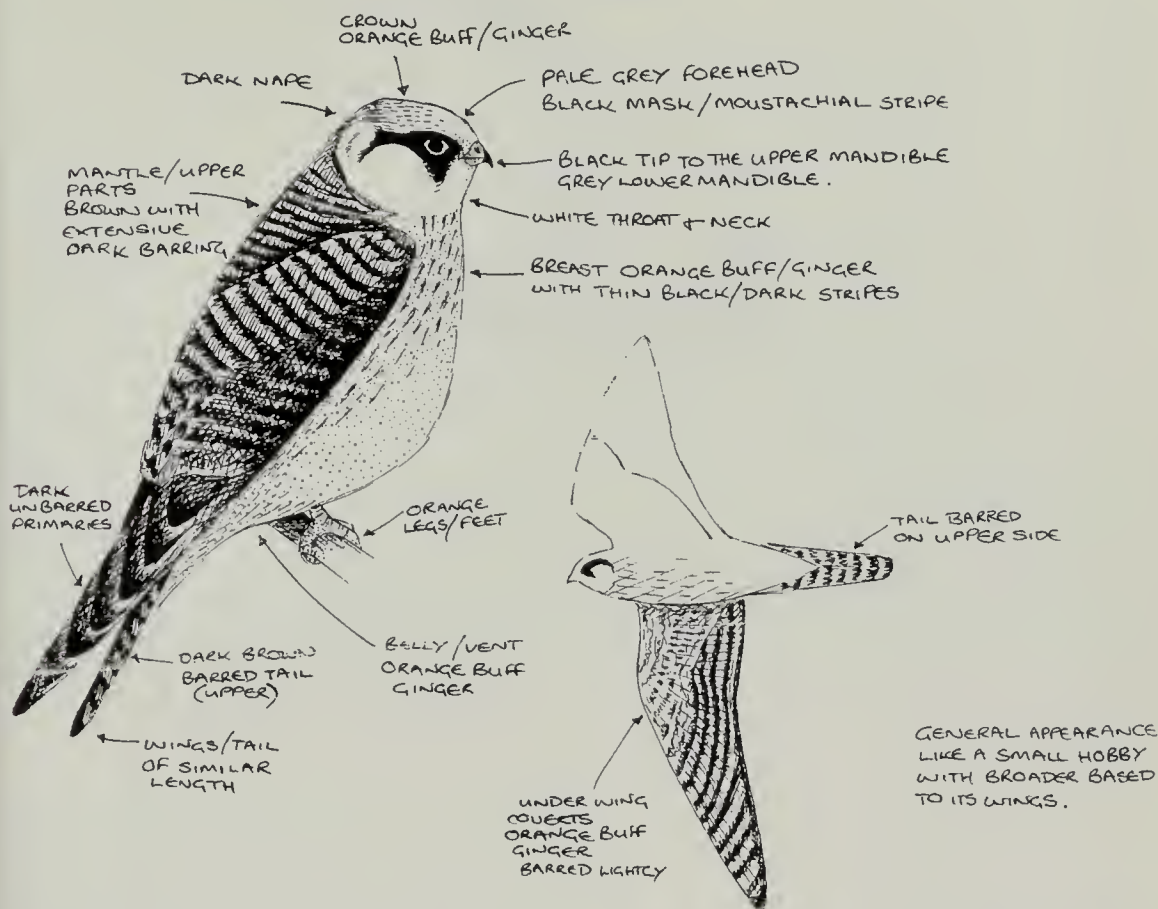 CROWN
ORANGE BUFF/GINGER
DARK NAPE
PALE GREY FOREHEAD
BLACK MASK/MOUSTACHIAL STRIPE
BLACK TIP TO THE UPPER MANDIBLE
GREY LOWER MANDIBLE.
MANTLE/UPPER
PARTS
BROWN WITH
EXTENSIVE
DARK BARRING
WHITE THROAT & NECK
BREAST ORANGE BUFF/GINGER
WITH THIN BLACK/DARK STRIPES
DARK
UNBARRED
PRIMARIES
ORANGE
LEGS/FEET
TAIL BARRED
ON UPPER SIDE
DARK BROWN
BARRED TAIL
(UPPER)
BELLY/VENT
ORANGE BUFF
GINGER
WINGS/TAIL
OF SIMILAR
LENGTH
UNDER WING
COVERTS
ORANGE BUFF
GINGER
BARRED LIGHTLY
GENERAL APPEARANCE
LIKE A SMALL HOBBY
WITH BROADER BASED
TO ITS WINGS.